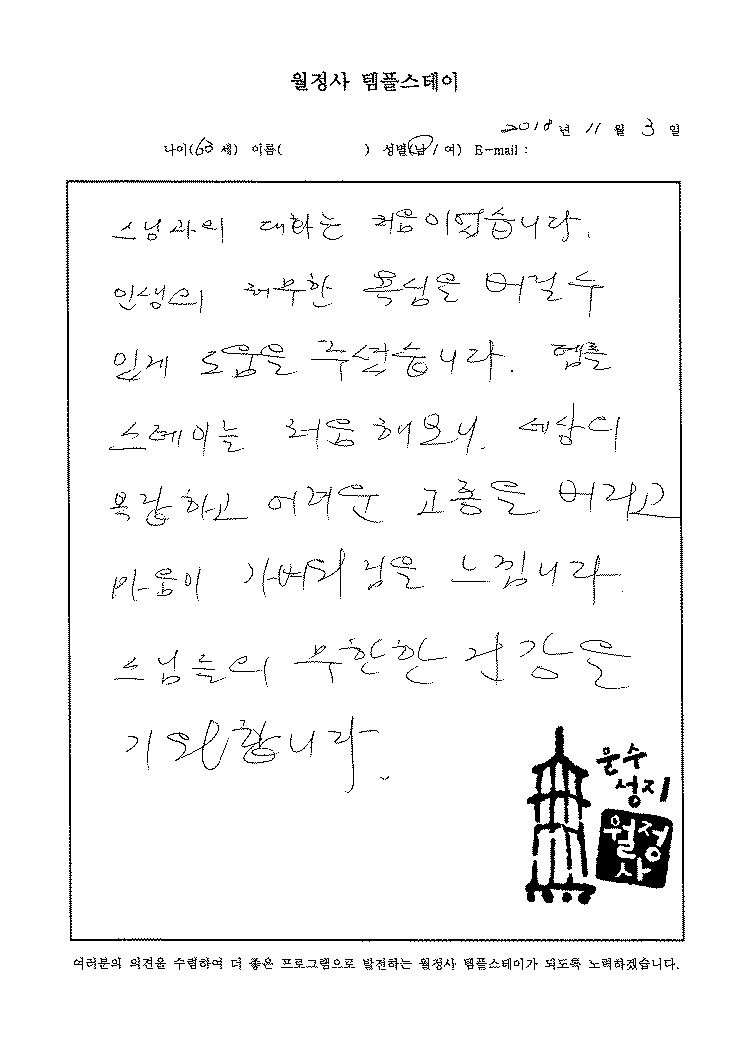 월정사 템플스테이
2018년 11월 3일
나이(63세) 이름( ) 성별(남/여) E-mail :
스님과의 대화는 처음이었습니다.
인생의 허무한 욕심을 버릴수
있게 도움을 주셨습니다. 템플
스테이는 처음 해보니. 세상의
복잡하고 어려운 고통을 버리고
마음이 가벼워짐을 느낍니다.
스님들의 무한한 건강을
기원합니다.
문수
성지
월정
사
여러분의 의견을 수렴하여 더 좋은 프로그램으로 발전하는 월정사 템플스테이가 되도록 노력하겠습니다.